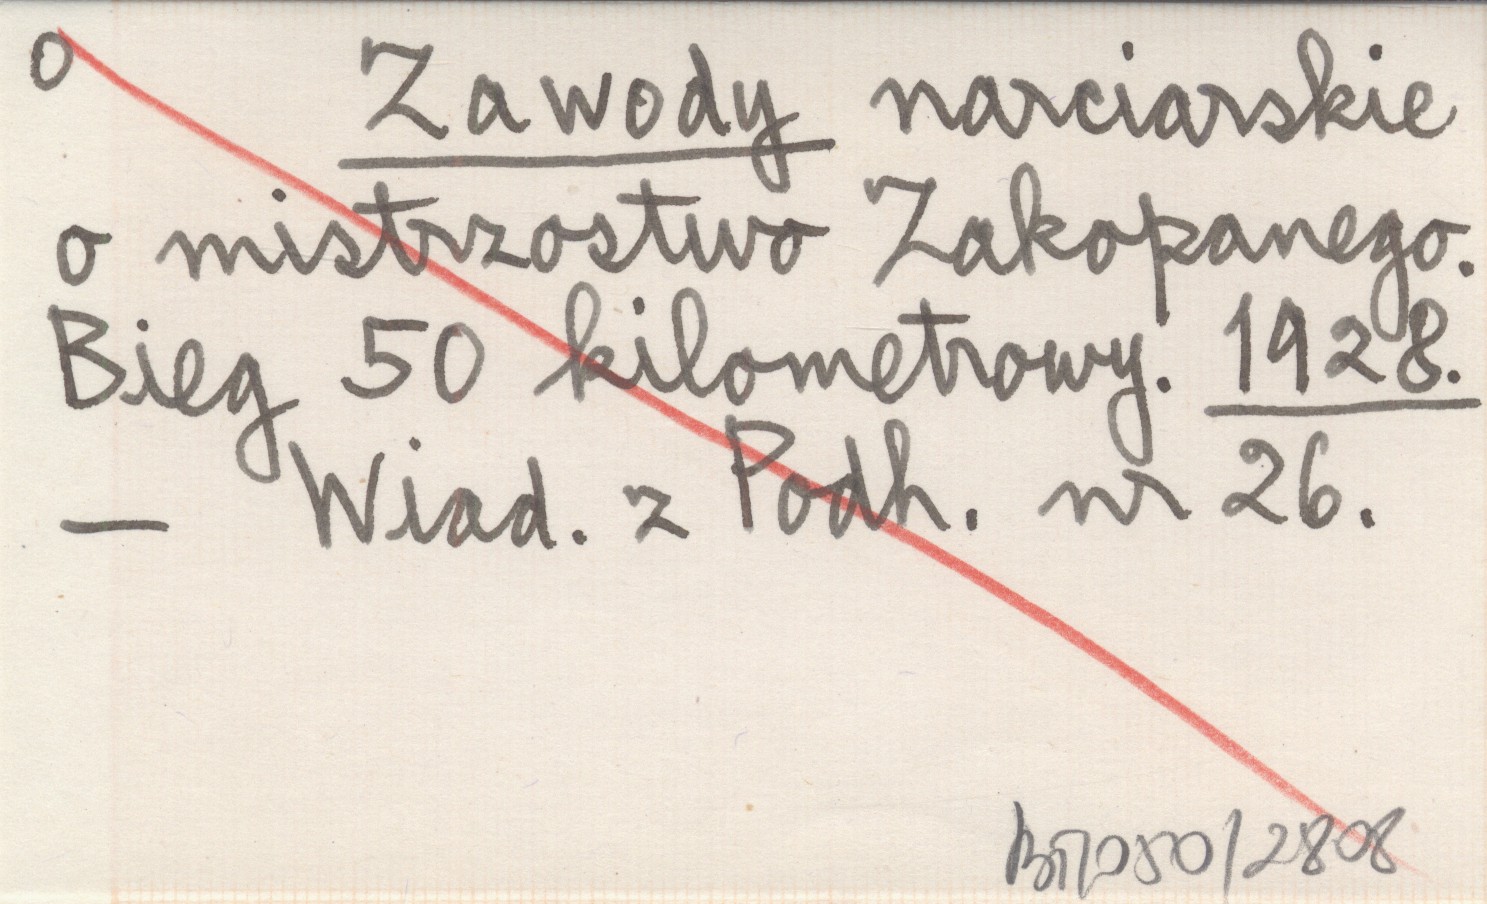 o Zawody narciarskie
o mistrzostwo Zakopanego.
Bieg 50 kilometrowy. 1928.
— Wiad. z Podh. nr 26.